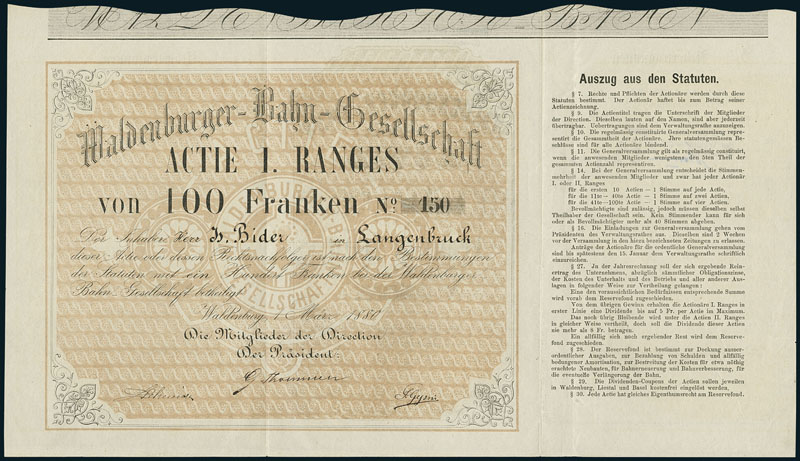 WALDENBURGER-BAHN
Waldenburger-Bahn-Gesellschaft
ACTIE I. RANGES
von 100 Franken No 150
Der Inhaber Herr J. Bider in Langenbruck
dieser Actie oder dessen Rechtsnachfolger ist nach den Bestimmungen
der Statuten mit ein Hundert Franken bei der Waldenburger
Bahn Gesellschaft betheiligt
Waldenburg, 1 März 1880
Die Mitglieder der Direction
Der Präsident:
G. Thommen
Auszug aus den Statuten.
§ 7. Rechte und Pflichten der Actionäre werden durch diese
Statuten bestimmt. Der Actionär haftet bis zum Betrag seiner
Actienzeichnung.
§ 9. Die Actientitel tragen die Unterschrift der Mitglieder
der Direction. Dieselben lauten auf den Namen, sind aber jederzeit
übertragbar. Uebertragungen sind dem Verwaltungsrathe anzuzeigen.
§ 10. Die regelmässig constituirte Generalversammlung repräsentirt
die Gesammtheit der Actionäre. Ihre statutengemässen Beschlüsse
sind für alle Actionäre bindend.
§ 11. Die Generalversammlung gilt als regelmässig constituirt,
wenn die anwesenden Mitglieder wenigstens den 5ten Theil der
gesammten Actienzahl repräsentiren.
§ 14. Bei der Generalversammlung entscheidet die Stimmenmehrheit
der anwesenden Mitglieder und zwar hat jeder Actionär
I. oder II. Ranges
für die ersten 10 Actien — 1 Stimme auf jede Actie,
für die 11te—40te Actie — 1 Stimme auf zwei Actien,
für die 41te—100te Actie — 1 Stimme auf vier Actien.
Bevollmächtigte sind zulässig, jedoch müssen dieselben selbst
Theilhaber der Gesellschaft sein. Kein Stimmender kann für sich
oder als Bevollmächtigter mehr als 40 Stimmen abgeben.
§ 16. Die Einladungen zur Generalversammlung gehen vom
Präsidenten des Verwaltungsrathes aus. Dieselben sind 2 Wochen
vor der Versammlung in den hiezu bezeichneten Zeitungen zu erlassen.
Anträge der Actionäre für die ordentliche Generalversammlung
sind bis spätestens den 15. Januar dem Verwaltungsrathe schriftlich
einzureichen.
§ 27. Ja der Jahresrechnung soll der sich ergebende Reinertrag
des Unternehmens, abzüglich sämmtlicher Obligationszinse,
der Kosten des Unterhalts und des Betriebs und aller anderer Auslagen
in folgender Weise zur Vertheilung gelangen:
Eine den voraussichtlichen Bedürfnissen entsprechende Summe
wird vorab dem Reservefond zugeschieden.
Von dem übrigen Gewinn erhalten die Actionäre I. Ranges in
erster Linie eine Dividende bis auf 5 Fr. per Actie im Maximum.
Das noch übrig Bleibende wird unter die Actien II. Ranges
in gleicher Weise vertheilt, doch soll die Dividende dieser Actien
nie mehr als 8 Fr. betragen.
Ein allfällig sich noch ergebender Rest wird dem Reservefond
zugeschieden.
§ 28. Der Reservefond ist bestimmt zur Deckung ausserordentlicher
Ausgaben, zur Bezahlung von Schulden und allfällig
bedungener Amortisation, zur Bestreitung der Kosten für etwa nöthig
erachtete Neubauten, für Bahnerneuerung und Bahnverbesserung, für
die eventuelle Verlängerung der Bahn.
§ 29. Die Dividenden-Coupons der Actien sollen jeweilen
in Waldenburg, Liestal und Basel kostenfrei eingelöst werden.
§ 30. Jede Actie hat gleiches Eigenthumsrecht am Reservefond.